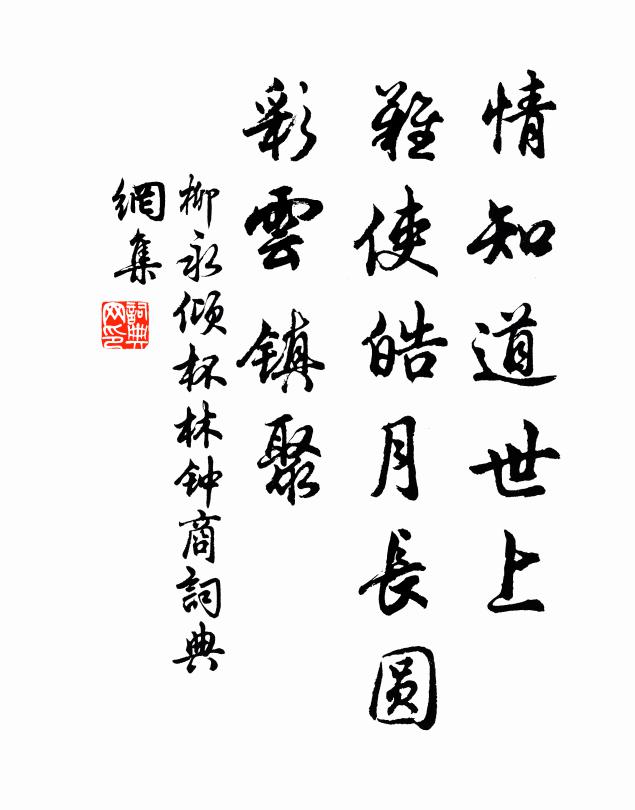 情知道世上
難使皓月長圆
彩雲镇聚
柳永倾杯林钟商詞典
網集
詞典
网印